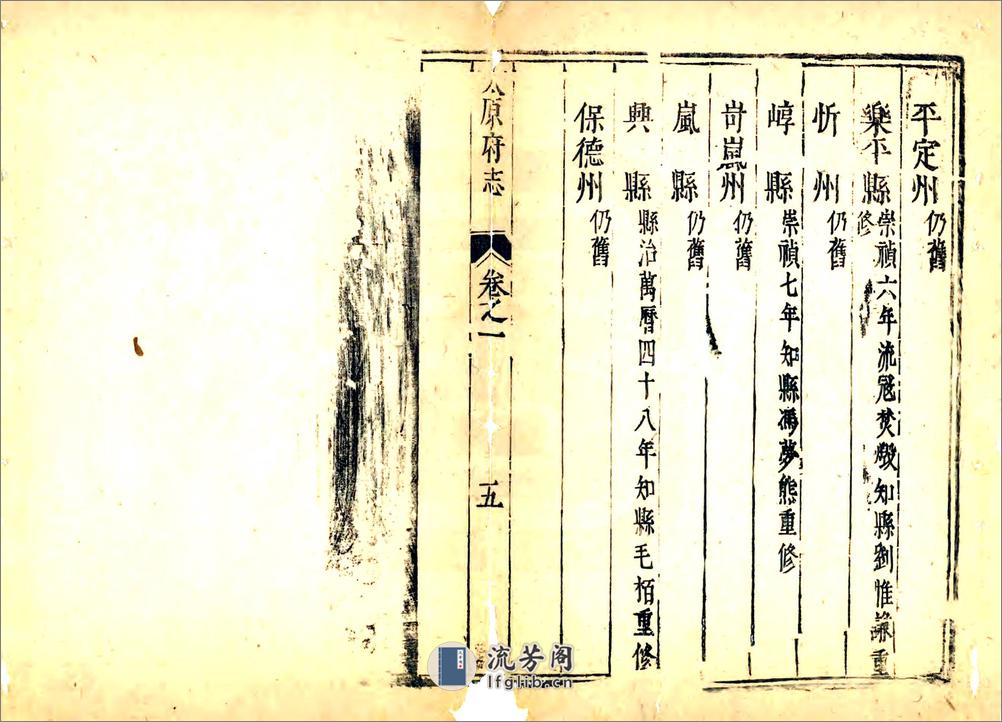 平定州仍舊
樂平縣崇禎六年流寇焚燬知縣劉惟謙重修
忻州仍舊
崞縣崇禎七年知縣馮夢熊重修
岢嵐州仍舊
嵐縣仍舊
興縣縣治萬曆四十八年知縣毛栢重修
保德州仍舊
太原府志 卷之一 五
流芳阁
lfglib.cn